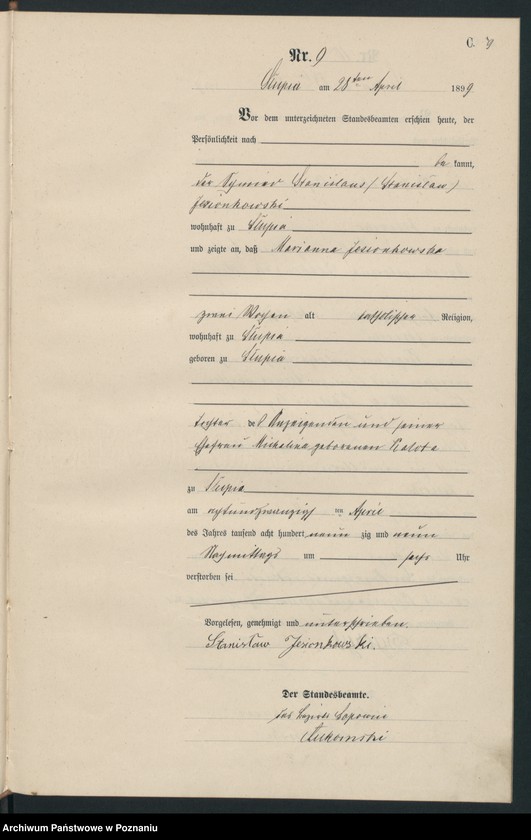 C.
Nr. 9
Słupia am 28ten April 1899
Vor dem unterzeichneten Standesbeamten erschien heute, der
Persönlichkeit nach
be kannt,
der Stanislaus (Stanisław)
Jesionkowski
wohnhaft zu Słupia
und zeigte an, daß Marianna Jesionkowska
zwei Wochen alt katholischer Religion,
wohnhaft zu Słupia
geboren zu Słupia
Tochter des Anzeigenden und seiner
Ehefrau Michalina geborenen
zu Słupia
am achtundzwanzigsten April
des Jahres tausend acht hundert neun zig und neun
Nachmittags um sechs Uhr
verstorben sei
Vorgelesen, genehmigt und unterschrieben.
Stanisław Jesionkowski.
Der Standesbeamte.
Archiwum Państwowe w Poznaniu